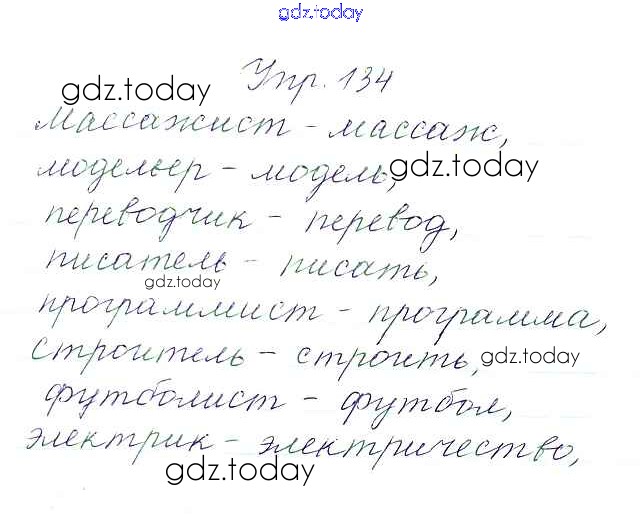 gdz.today
Упр. 134
gdz.today
Массажист - массаж,
модельер - модель,
gdz.today
переводчик - перевод,
писатель - писать,
gdz.today
программист - программа,
строитель - строить,
gdz.today
футболист - футбол,
электрик - электричество,
gdz.today